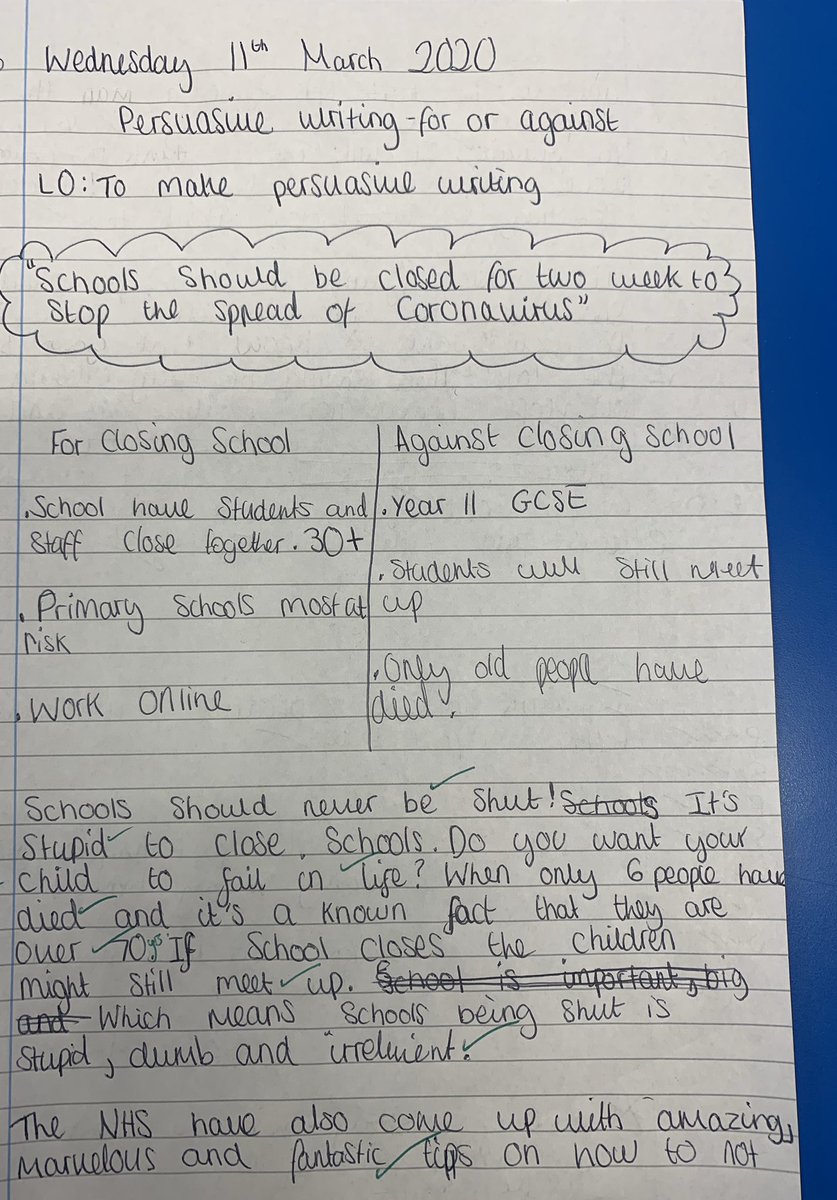 Wednesday 11th March 2020
Persuasive writing - for or against
LO: To make persuasive writing
"Schools should be closed for two week to
stop the spread of Coronavirus"
For Closing School
. School have students and
staff close together. 30+
. Primary schools most at
risk
. Work online
Against closing school
. Year 11 GCSE
. Students will still meet
up
. Only old people have
died.
Schools should never be shut! Schools It's
stupid to close schools. Do you want your
child to fail in life? When only 6 people have
died and it's a known fact that they are
over 70yrs If school closes the children
might still meet up. School is important, big
and which means schools being shut is
stupid, dumb and irrelvient.
The NHS have also come up with amazing,
marvelous and fantastic tipps on how to not